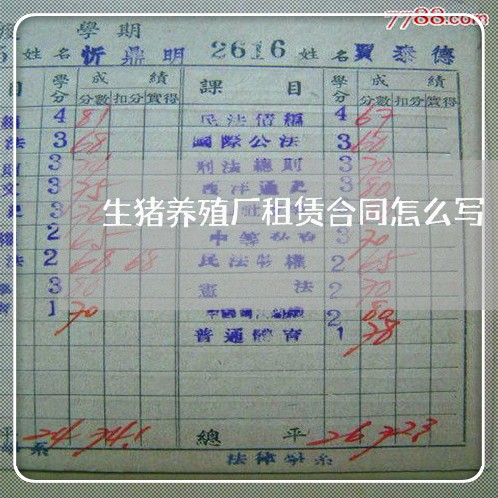 7788.com
學期
姓名 忻鼎明 2616 姓名 賈泰德
目 學分 成績 課目 學分 成績
分數 扣分 實得 分數 扣分 實得
4 81 民法債編 4 67
法 3 68 國際公法 3 60
3 刑法總則 3 70
3 75 西洋通史 3 80
生猪养殖厂租赁合同怎么写
2 65 3 70
法 2 68 68 民法物權 2 65
3 80 憲法 2 70
1 70 2 80
普通體育 1 78
平 24 74.1 總平 26 72.3
系 法律學系